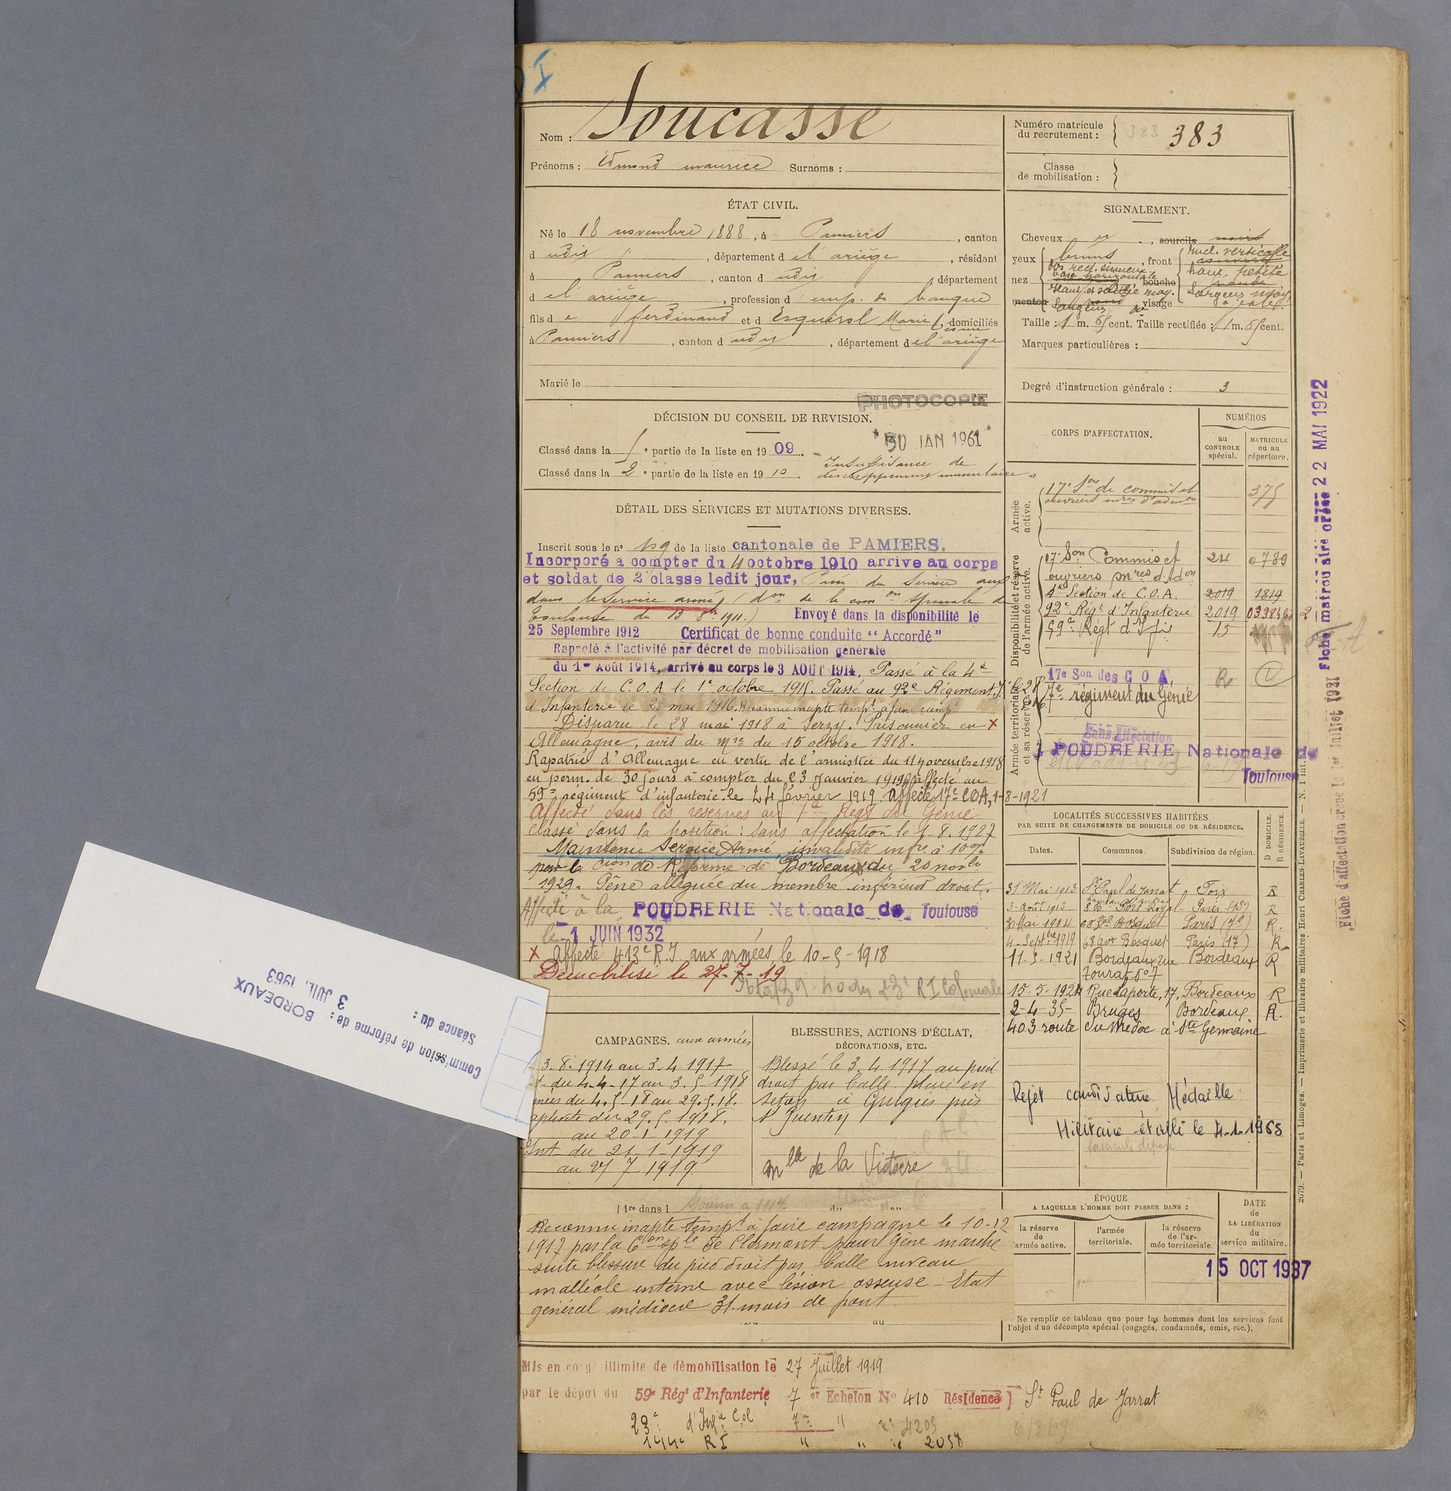 I
Nom : Soucasse
Prénoms : Edmond maurice Surnoms :
Numéro matricule
du recrutement : 383
Classe
de mobilisation :
ÉTAT CIVIL.
Né le 18 novembre 1888, à Pamiers, canton
d udit, département d el ariège, résidant
à Pamiers, canton d udit, département
d el ariège, profession d emp. de banque
fils d e ferdinand et d Esquirol Marie, domiciliés
à Pamiers, canton d udit, département d el ariège
Marié le
SIGNALEMENT.
Cheveux , sourcils noirs
yeux bruns, front
incl. verticale
haut. petite
largeur moy
nez dos rect. sinueux
base horizontale
haut. et saillie moy.
largeur
bouche
menton visage
Taille : 1 m. 65 cent. Taille rectifiée : 1 m. 65 cent.
Marques particulières :
Degré d'instruction générale : 3
PHOTOCOPIE
30 JAN 1961
DÉCISION DU CONSEIL DE REVISION.
Classé dans la 5e partie de la liste en 1909. - Insuffisance de
Classé dans la 2e partie de la liste en 1910. développement musculaire
DÉTAIL DES SERVICES ET MUTATIONS DIVERSES.
Inscrit sous le n° 129 de la liste cantonale de PAMIERS.
Incorporé a compter du 4 octobre 1910 arrive au corps
et soldat de 2e classe ledit jour,
dans le service armé
Toulouse du 13 8bre 1911.) Envoyé dans la disponibilité le
25 Septembre 1912 Certificat de bonne conduite "Accordé"
Rappelé à l'activité par décret de mobilisation générale
du 1er Août 1914, arrivé au corps le 3 AOUT 1914, Passé à la 4e
Section de C.O.A le 1er octobre 1915. Passé au 92e Régiment
d'Infanterie le 28 mai 1916. Reconnu inapte tempt à faire camp
Disparu le 28 mai 1918 à Serzy. Prisonnier en x
Allemagne, avis du Mre du 15 octobre 1918.
Rapatrié d'Allemagne en vertu de l'armistice du 11 novembre 1918
en perm. de 30 jours à compter du 23 Janvier 1919 affecté au
59e régiment d'infanterie le 24 février 1919. Affecté 17e COA, 1-8-1921
Affecté dans les réserves au 7e Regt du Génie
Classé dans la position : sans affectation le 1. 8. 1927
Maintenu Service Armé invalidité infre à 10%
par la Cion de Réforme de Bordeaux du 20 novbre
1929. Gêne alléguée du membre inférieur droit.
Affecté à la POUDRERIE Nationale de Toulouse
le 1 JUIN 1932
x affecté 413e R.I aux armées le 10-5-1918
Démobilisé le 27-7-19
CORPS D'AFFECTATION.
NUMÉROS
au
CONTROLE
spécial.
MATRICULE
ou au
répertoire.
Armée
active.
17e Son de commis et
ouvriers mres d'admon
375
Disponibilité et réserve
de l'armée active.
17e Son Commis et 24 0789
ouvriers mres d'adon
4e Section de C.O.A. 2019 1819
92e Regt d'Infanterie 2019
59e Regt d'Ifie 15
Armée territoriale
et sa réserve.
17e Son des C O A R
7e régiment du Génie
Sans affectation
POUDRERIE Nationale de
Toulouse
Fiche matriculaire créée 22 MAI 1922
Fiche d'affectation créée le 1er Juillet 1931
LOCALITÉS SUCCESSIVES HABITÉES
PAR SUITE DE CHANGEMENTS DE DOMICILE OU DE RÉSIDENCE.
D DOMICILE.
R RÉSIDENCE.
Dates. Communes. Subdivision de région.
31 Mai 1913 St Paul de Jarrat Foix R
3 août 1913 Bd Port Royal Paris (13e) R
20 Mai 1914 68 av. Bosquet Paris (7e) R.
4 Septbre 1919 68 av. Bosquet Paris (17) R
11-3-1921 Bordeaux rue Bordeaux R
Tourat n°7
15-5-1924 Rue Laporte, 17, Bordeaux R
2-4-35- Bruges Bordeaux R.
403 route du Médoc à Ste Germaine
Rejet candidature Médaille
Militaire établi le 4-1-1965
CAMPAGNES. aux armées
3-8-1914 au 3-4-1917
du 4-4-17 au 3-5-1918
du 4.5.18 au 29.5.18.
du 29.5.1918.
au 20-1-1919
Int. du 21-1-1919
au 27 7 1919
BLESSURES, ACTIONS D'ÉCLAT,
DÉCORATIONS, ETC.
Blessé le 3.4.1917 au pied
droit par balle placé en
seton à Grugies près
St Quentin
Mlle de la Victoire
Reconnu inapte tempt à faire campagne le 10-12
1917 par la Con sple de Clermont pour Gêne marche
suite blessure du pied droit par balle niveau
malléole interne avec lésion osseuse - Etat
général médiocre 31 mois de front
ÉPOQUE
A LAQUELLE L'HOMME DOIT PASSER DANS :
la réserve
de
l'armée active.
l'armée
territoriale.
la réserve
de l'ar-
mée territoriale.
DATE
de
LA LIBÉRATION
du
service militaire.
15 OCT 1937
Ne remplir ce tableau que pour les hommes dont les services font
l'objet d'un décompte spécial (engagés, condamnés, omis, etc.).
2679. — Paris et Limoges. — Imprimerie et librairie militaires Henri CHARLES-LAVAUZELLE. — N. 1 int.
Mis en congé illimité de démobilisation le 27 Juillet 1919
par le dépôt du 59e Régt d'Infanterie 7 er Echelon N° 410 Résidence St Paul de Jarrat
23e d'Infie Col 7e " n° 4205
144e RI " " " 2058
Commission de réforme de : BORDEAUX
Séance du : 3 JUIL. 1963